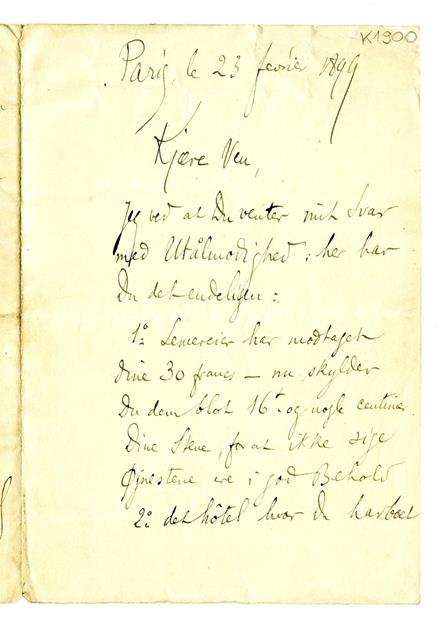 K1900
Paris, le 23 février 1899
Kjære Ven,
Jeg ved at Du venter mit Svar
med Utålmodighed: her har
Du det endeligen:
1º Lemercier har modtaget
dine 30 francs – nu skylder
Du dem blot 16 f. og nogle centimer.
Dine Stene, for at ikke sige
Øjnestene ere i god Behold
2º det hôtel hvor Du har boet